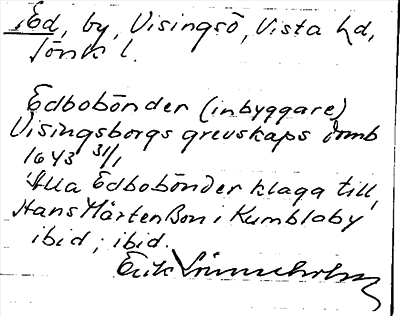 Ed, by, Visingsö, Vista hd,
Jönk l.
Edbobönder (inbyggare)
Visingsborgs grevskaps domb
1643 31/1
Alla Edbobönder klaga till
Hans Mårtensson i Kumblaby
ibid; ibid.
Erik